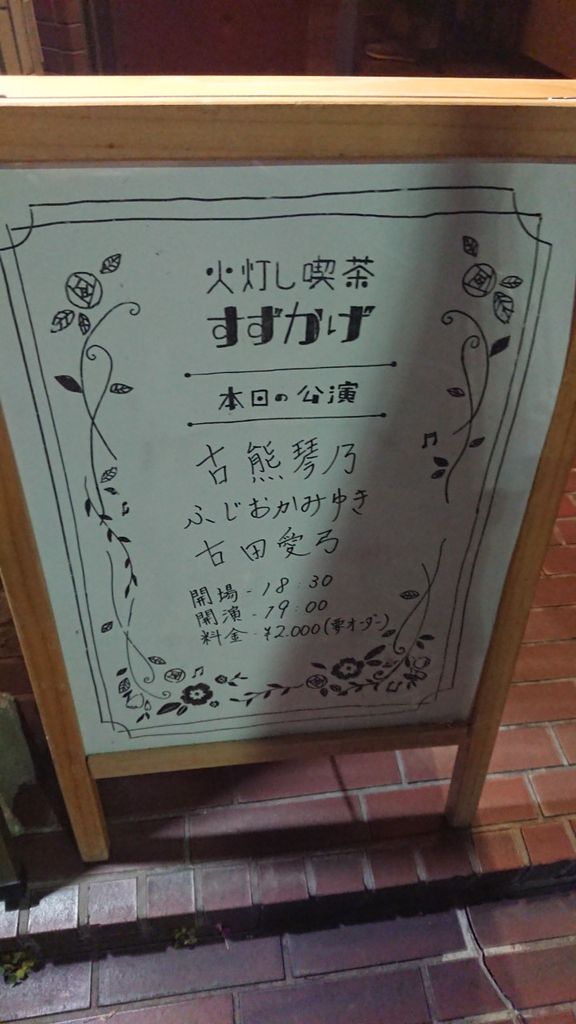 火灯し喫茶
すずかげ
本日の公演
古熊琴乃
ふじおかみゆき
古田愛弓
開場-18:30
開演-19:00
料金-¥2.000(要オーダー)